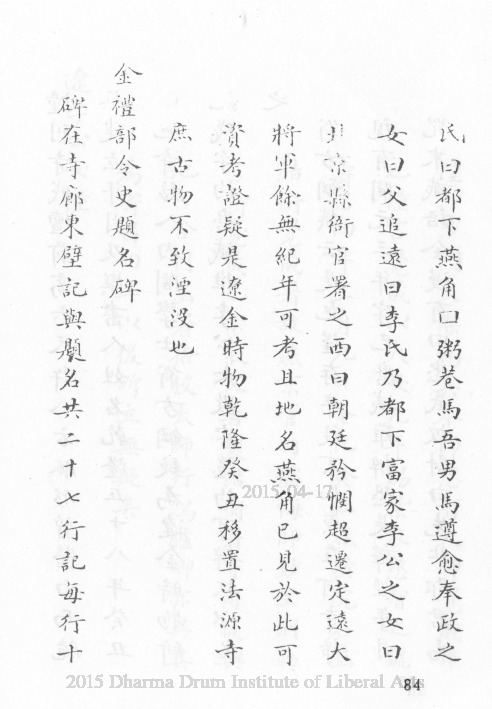 氏曰都下燕角口粥巷馬吾男馬遵愈奉政之
女曰父追遠曰李氏乃都下富家李公之女曰
京縣衙官署之西曰朝廷矜憫超遷定遠大
將軍餘無紀年可考且地名燕角已見於此可
資考證疑是遼金時物乾隆癸丑移置法源寺
庶古物不致湮沒也
金禮部令史題名碑
碑在寺廊東壁記與題名共二十七行記每行十
2015-04-17
2015 Dharma Drum Institute of Liberal Arts
84